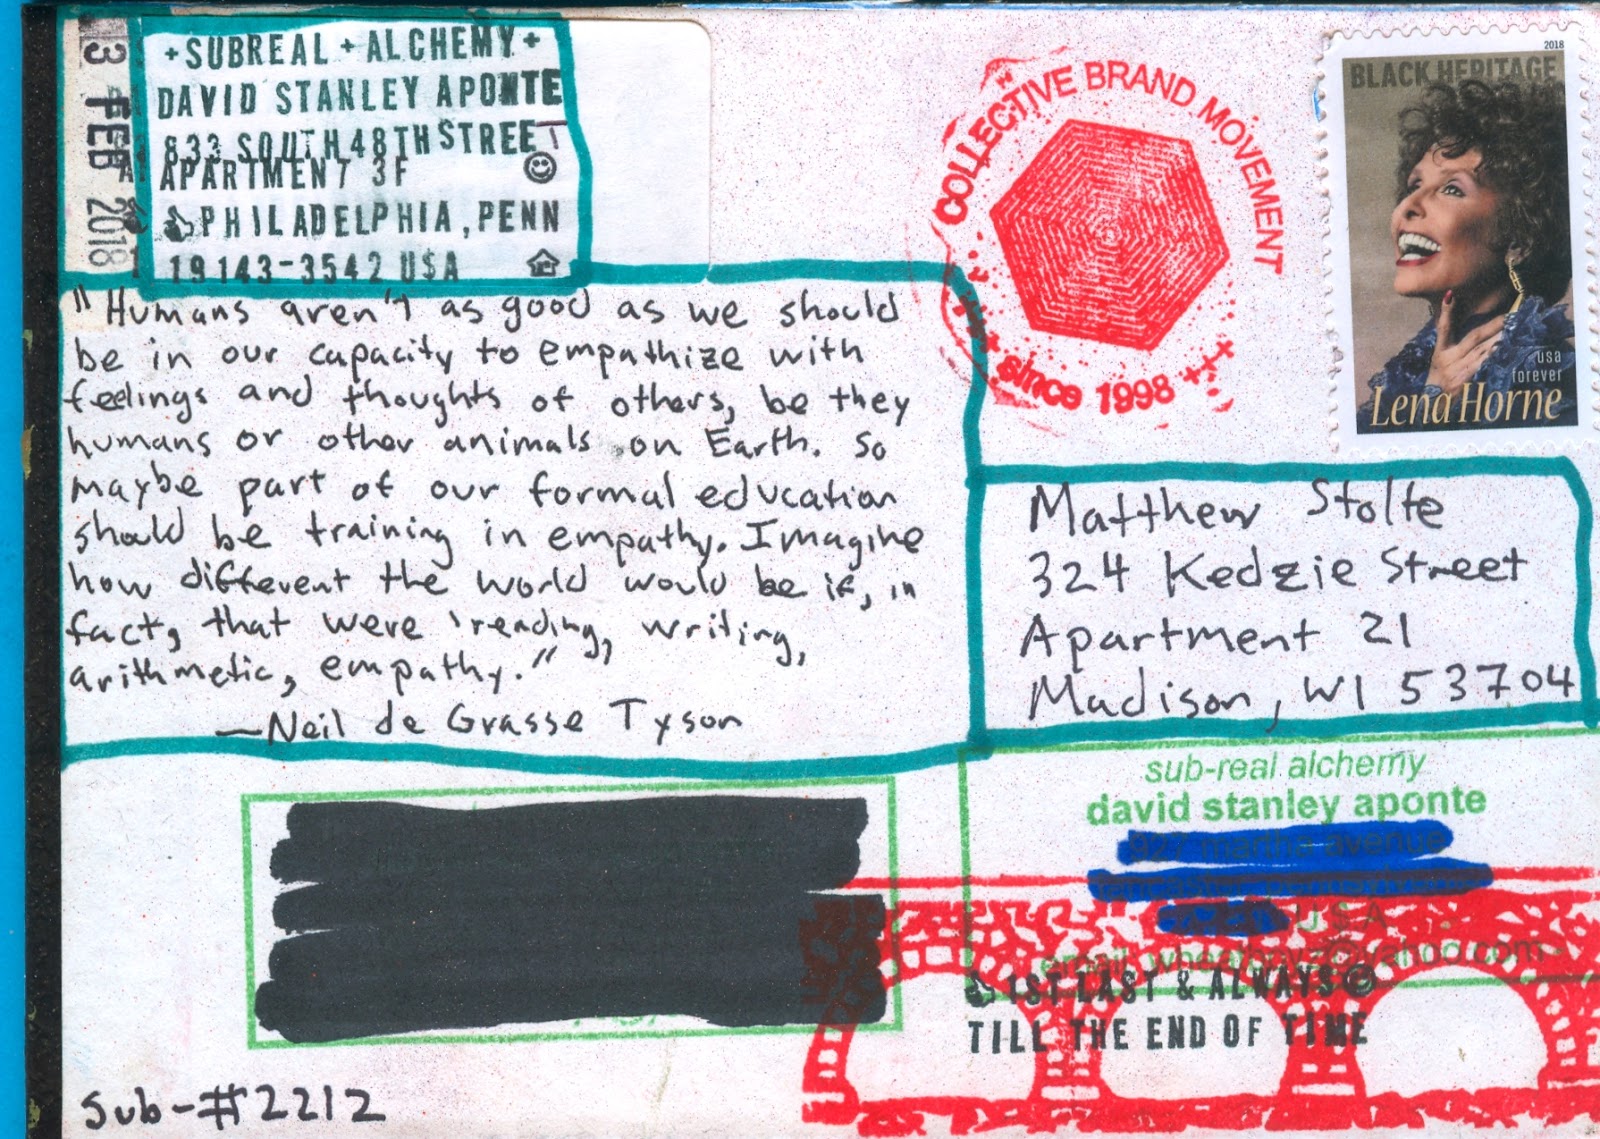 +SUBREAL+ALCHEMY+
DAVID STANLEY APONTE
833 SOUTH 48TH STREET
APARTMENT 3F
PHILADELPHIA, PENN
19143-3542 U$A
3 FEB 2018
COLLECTIVE BRAND MOVEMENT
since 1998
2018
BLACK HERITAGE
usa
forever
Lena Horne
"Humans aren't as good as we should
be in our capacity to empathize with
feelings and thoughts of others, be they
humans or other animals on Earth. So
maybe part of our formal education
should be training in empathy. Imagine
how different the world would be if, in
fact, that were 'reading, writing,
arithmetic, empathy."
—Neil de Grasse Tyson
Matthew Stolte
324 Kedzie Street
Apartment 21
Madison, WI 53704
sub-real alchemy
david stanley aponte
927 martha avenue
U$A
1ST LAST & ALWAYS
TILL THE END OF TIME
Sub-#2212